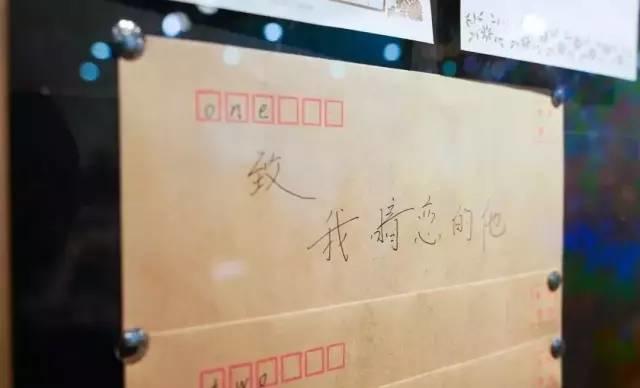 one
致
我暗恋的他
two